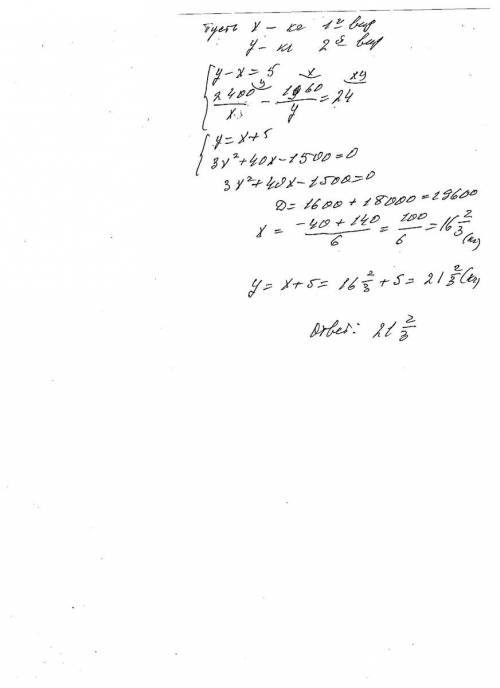 Пусть x – кг 1й вид
y – кг 2й вид
y – x = 5
2400/x - 1960/y = 24
y = x + 5
3x² + 40x - 1500 = 0
3x² + 40x - 1500 = 0
D = 1600 + 18000 = 19600
x = (-40 + 140)/6 = 100/6 = 16 2/3 (кг)
y = x + 5 = 16 2/3 + 5 = 21 2/3 (кг)
Ответ: 21 2/3